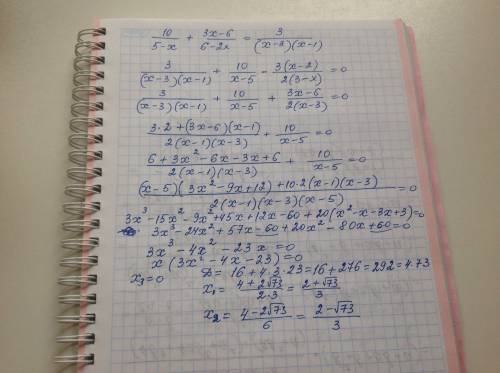 10/(5-x) + (3x-6)/(6-2x) = 3/((x-3)(x-1))
3/((x-3)(x-1)) + 10/(x-5) - 3(x-2)/(2(3-x)) = 0
3/((x-3)(x-1)) + 10/(x-5) + (3x-6)/(2(x-3)) = 0
(3·2+(3x-6)(x-1))/(2(x-1)(x-3)) + 10/(x-5) = 0
(6+3x²-6x-3x+6)/(2(x-1)(x-3)) + 10/(x-5) = 0
((x-5)(3x²-9x+12)+10·2(x-1)(x-3))/(2(x-1)(x-3)(x-5)) = 0
3x³-15x²-9x²+45x+12x-60+20(x²-x-3x+3)=0
3x³-24x²+57x-60+20x²-80x+60=0
3x³-4x²-23x=0
x(3x²-4x-23)=0
x₃=0 D=16+4·3·23=16+276=292=4·73
x₁ = (4+2√73)/(2·3) = (2+√73)/3
x₂ = (4-2√73)/6 = (2-√73)/3